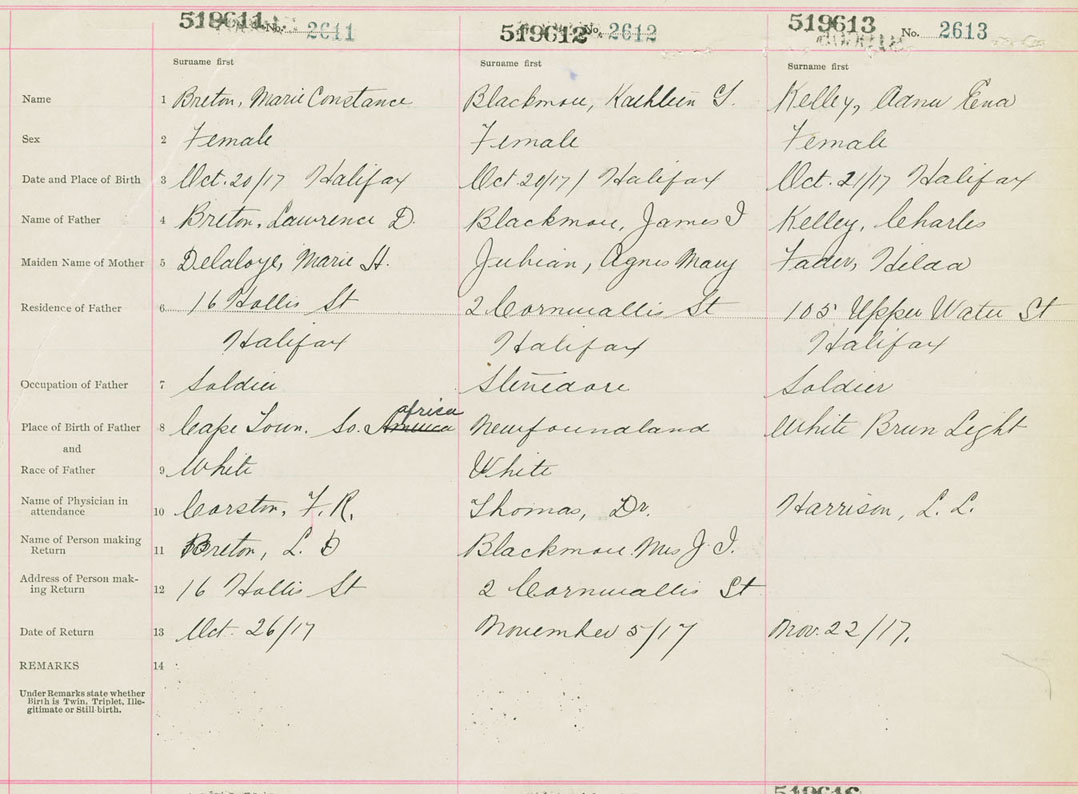 519611 No. 2611 519612 No. 2612 519613 No. 2613
Surname first Surname first Surname first
Name 1 Breton, Marie Constance Blackmore, Kathleen G. Kelley, Edna Ena
Sex 2 Female Female Female
Date and Place of Birth 3 Oct. 20/17 Halifax Oct 20/17 Halifax Oct. 21/17 Halifax
Name of Father 4 Breton, Lawrence D. Blackmore, James J Kelley, Charles
Maiden Name of Mother 5 Delaloye, Marie H. Jubian, Agnes Mary Fader, Hilda
Residence of Father 6 16 Hollis St 2 Cornwallis St 105 Upper Water St
Halifax Halifax Halifax
Occupation of Father 7 Soldier Stevedore Soldier
africa
Place of Birth of Father 8 Cape Town. So. America Newfoundland White Brun Light
and
Race of Father 9 White White
Name of Physician in
attendance 10 Corston, F. R. Thomas, Dr. Harrison, L. L.
Name of Person making
Return 11 Breton, L. D Blackmore Mrs J. J.
Address of Person mak-
ing Return 12 16 Hollis St 2 Cornwallis St
Date of Return 13 Oct. 26/17 November 5/17 Nov. 22/17.
REMARKS 14
Under Remarks state whether
Birth is Twin, Triplet, Ille-
gitimate or Still-birth.